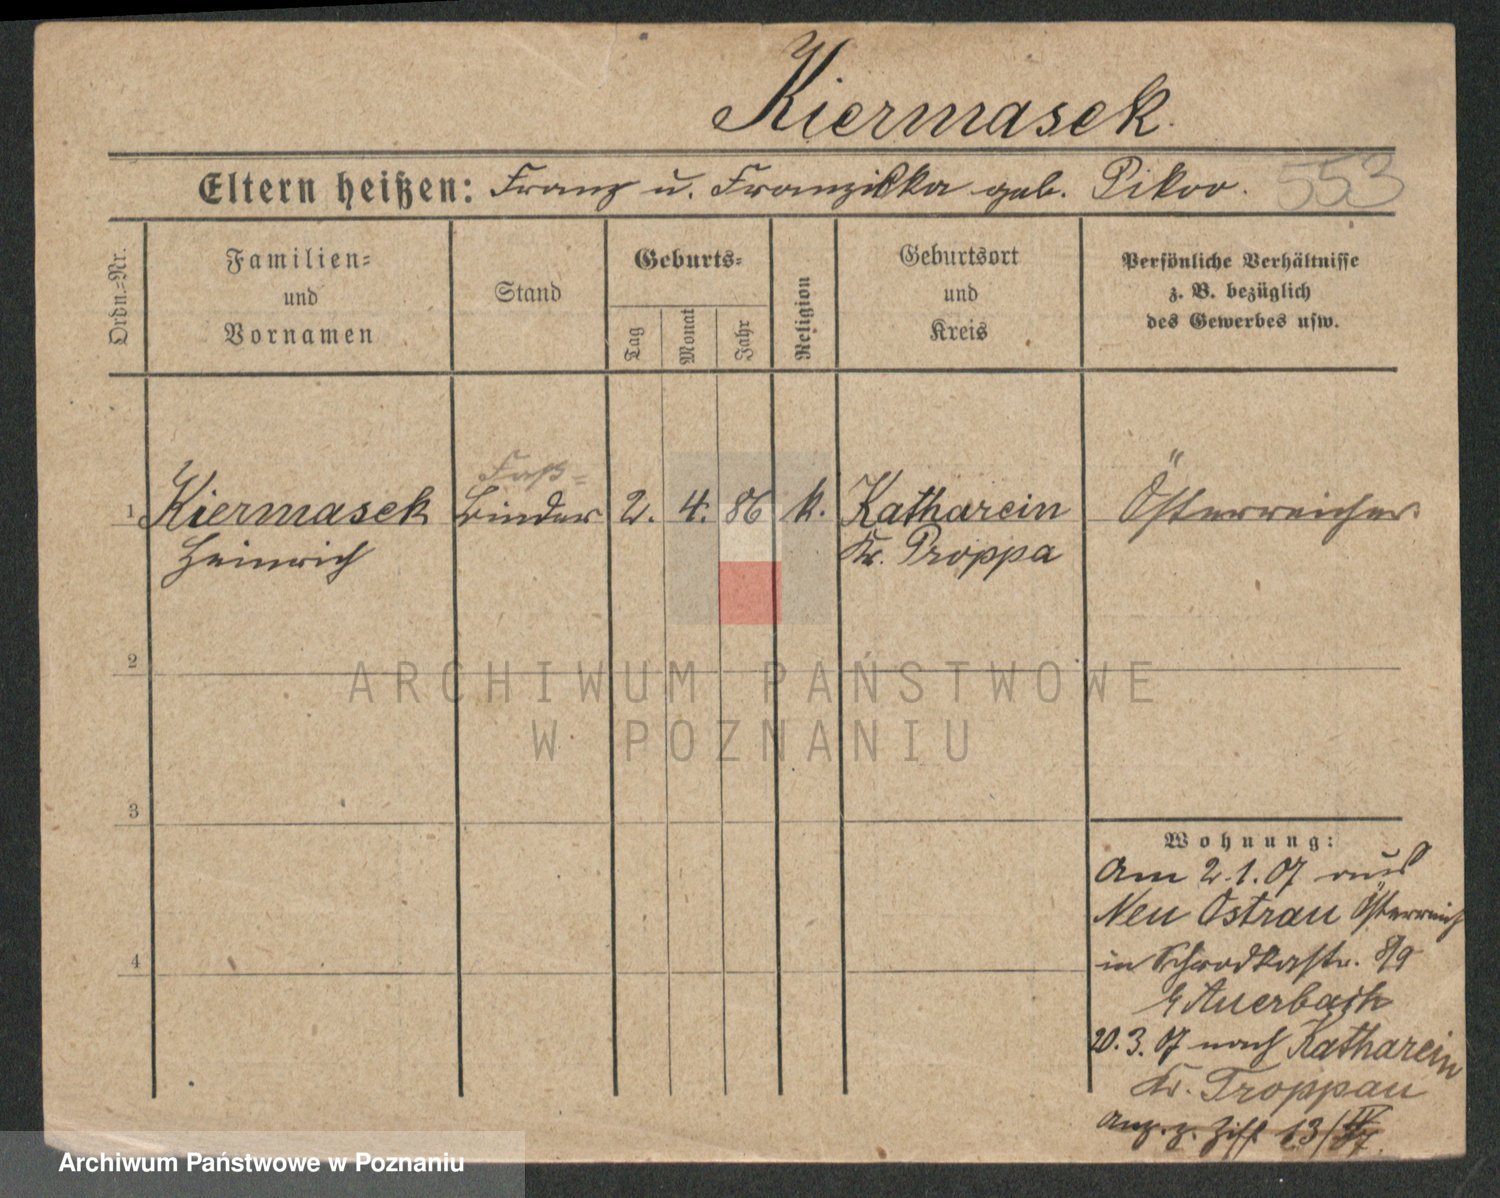 Kiermasek
Eltern heißen: Franz u. Franziska geb. Pikov. 553
Ordn.-Nr.
Familien-
und
Vornamen
Stand
Geburts-
Tag
Monat
Jahr
Religion
Geburtsort
und
Kreis
Persönliche Verhältnisse
z. B. bezüglich
des Gewerbes usw.
Faß-
1 Kiermasek Binder 2. 4. 86 k. Katharein Österreicher
Heinrich Kr. Troppa
2
3
4
Wohnung:
Am 2.1.07 aus
Neu Ostrau Österreich
in Schrodkastr. 8/9
Auerbach
20.3.07 nach Katharein
Kr. Troppau
Anz. z. Ziff. 13/
ARCHIWUM PAŃSTWOWE
W POZNANIU
Archiwum Państwowe w Poznaniu